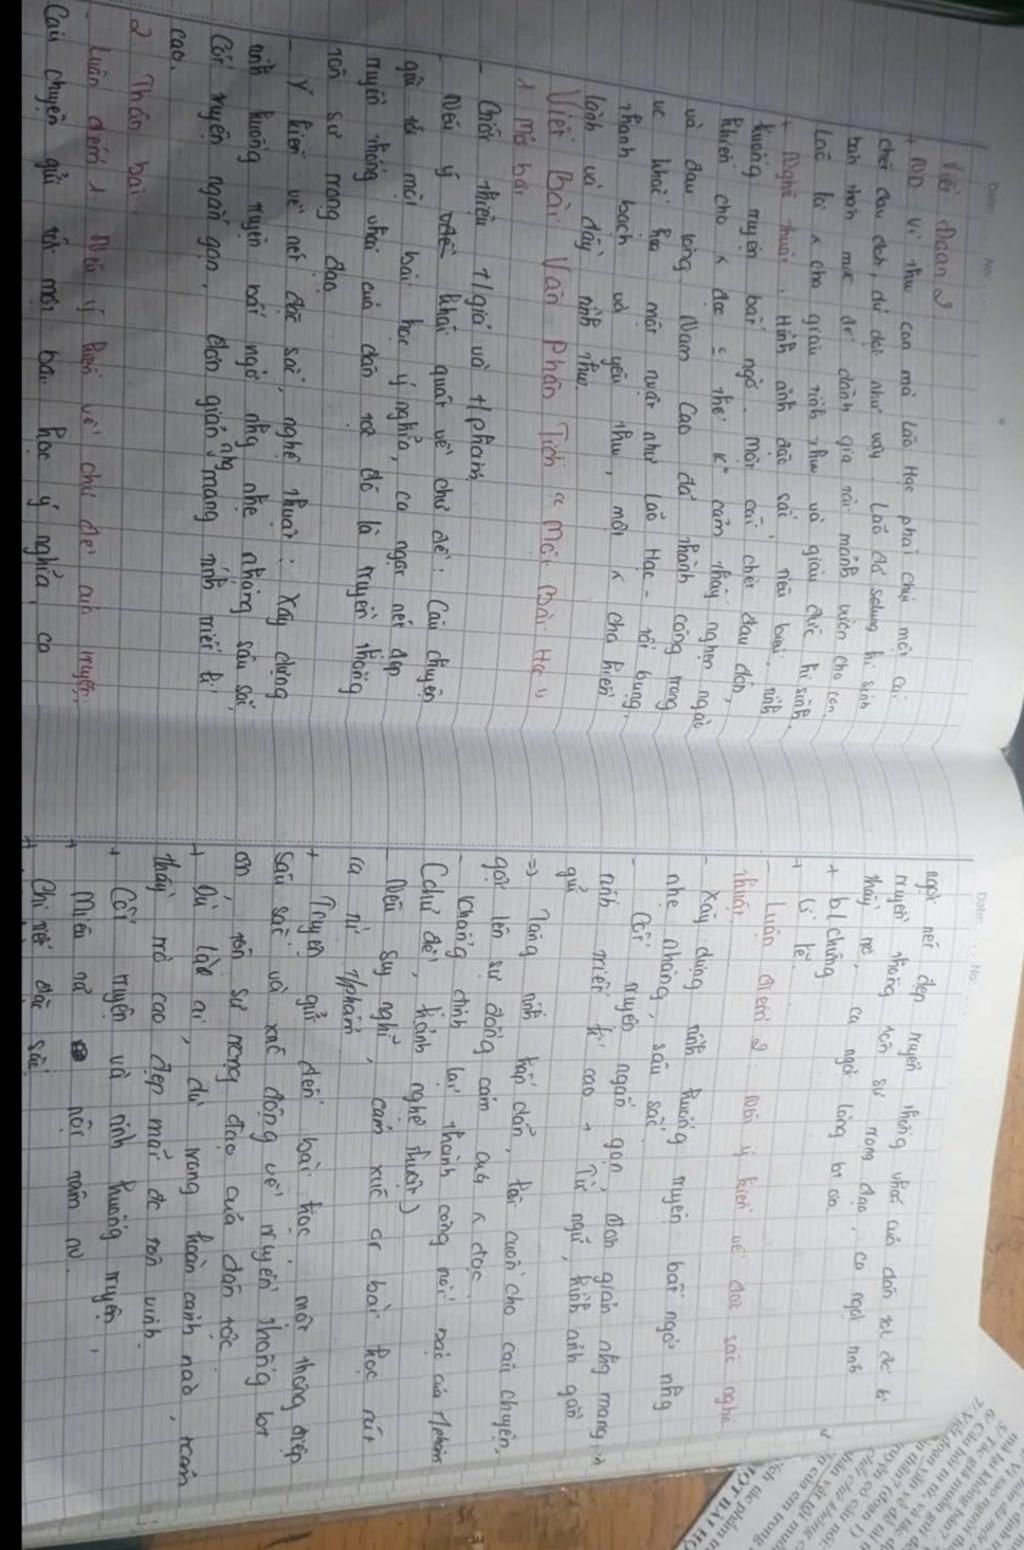 Viết Đoạn 2
+ ND vì thw con mà Lão Hạc phải chịu một cái
chết đau đớn, dữ dội như vậy. Lão đã hi sinh
bản thân mk để dành gia tài mảnh vườn cho con.
Lão là cha giàu tình thw và giàu đức hi sinh.
+ Nghệ thuật: Hình ảnh đặc sắc, tiêu biểu, tình
huống truyện bất ngờ. một cái chết đau đớn,
khiến cho đọc cảm thấy nghẹn ngào
và đau lòng. Nam Cao đã thành công trong
vc khắc họa một nvật như Lão Hạc - tốt bụng,
thanh bạch và yêu thw, một cha hiền
lành và đầy tình thw.
Viết Bài Văn Phân Tích "Một Hạ"
1 Mở bài
- Giới thiệu t/giả và t/phẩm
- Nêu ý khái quát về chủ đề: Câu chuyện
gửi tới một bài học ý nghĩa, ca ngợi nét đẹp
truyền thống của dân tộc đó là truyền thống
tôn sư trọng đạo
- Ý kiến về nét đặc sắc, nghệ thuật: Xây dựng
tình huống truyện bất ngờ nhg nhẹ nhàng sâu sắc,
Cốt truyện ngắn gọn, đơn giản nhg mang tính triết lí
cao.
2. Thân bài
Luận điểm 1. Nêu ý kiến về chủ đề của truyện
Câu chuyện gửi tới một bài học ý nghĩa, ca
ngợi nét đẹp truyền thống của dân tộc đó là
truyền thống tôn sư trọng đạo, ca ngợi tình
thầy trò, ca ngợi lòng b. ơn
+ b/chứng
+ Lí lẽ
- Luận điểm 2. Nêu ý kiến về đặc sắc nghệ
thuật
- Xây dựng tình huống truyện bất ngờ nhg
nhẹ nhàng, sâu sắc
- Cốt truyện ngắn gọn, đơn giản nhg mang
tính triết lí cao + Từ ngữ, hình ảnh gần
gũi
=> Tăng tính hấp dẫn, lôi cuốn cho câu chuyện,
gợi lên sự đồng cảm của đọc
- Khẳng định lại thành công nổi bật của t/phẩm
(chủ đề, hình nghệ thuật)
- Nêu suy nghĩ, cảm xúc or bài học rút
ra từ t/phẩm
+ Truyện gửi đến bài học, một thông điệp
sâu sắc và xúc động về truyền thống
ơn tôn sư trọng đạo của dân tộc
+ Dù là ai, dù trong hoàn cảnh nào,
thầy trò cao đẹp mãi đc tôn vinh.
+ Cốt truyện và tình huống truyện,
+ Miêu tả nội tâm nv.
+ Chi tiết đặc sắc